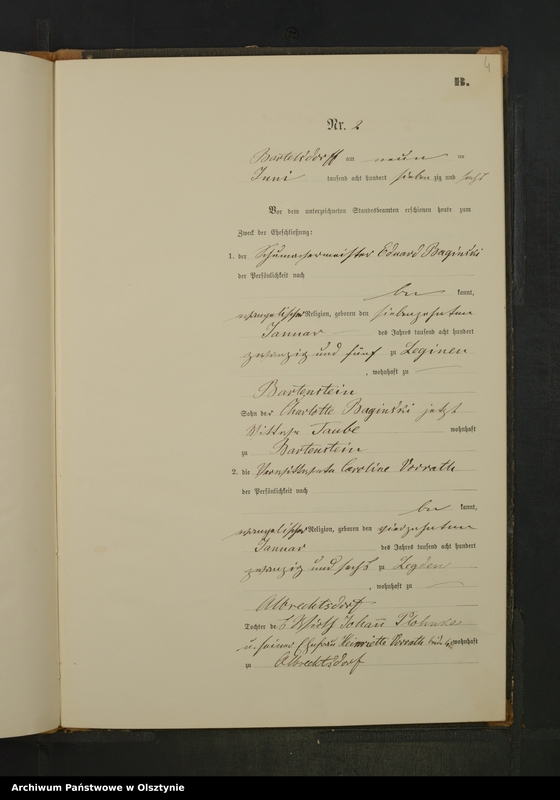 4
B.
Nr. 2
Bartelsdorf am neun ten
Juni tausend acht hundert sieben zig und sechs
Vor dem unterzeichneten Standesbeamten erschienen heute zum
Zweck der Eheschließung:
1. der Schumachermeister Eduard Baginski
der Persönlichkeit nach
be kannt,
evangelischer Religion, geboren den siebenzehnten
Januar des Jahres tausend acht hundert
zwanzig und fünf zu Leginen
, wohnhaft zu
Bartenstein
Sohn der Charlotte Baginski jetzt
Wittwe Taube wohnhaft
zu Bartenstein
2. die Caroline Vorrath
der Persönlichkeit nach
be kannt,
evangelischer Religion, geboren den vierzehnten
Januar des Jahres tausend acht hundert
zwanzig und sechs zu Legden
, wohnhaft zu
Albrechtsdorf
Tochter des Wirths Johann
u. seiner Ehefrau Heinriette Vorrath wohnhaft
zu Albrechtsdorf
Archiwum Państwowe w Olsztynie